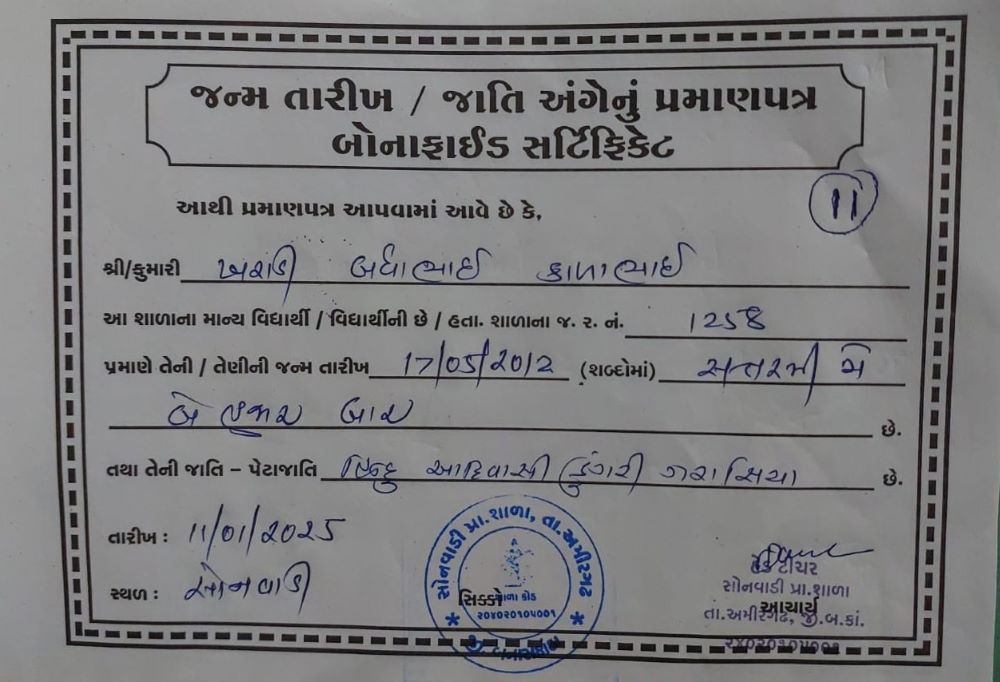 જન્મ તારીખ / જાતિ અંગેનું પ્રમાણપત્ર
બોનાફાઈડ સર્ટિફિકેટ
11
આથી પ્રમાણપત્ર આપવામાં આવે છે કે,
શ્રી/કુમારી ખરાડી બધાભાઈ કાળાભાઈ
આ શાળાના માન્ય વિદ્યાર્થી / વિદ્યાર્થીની છે / હતા. શાળાના જ. ર. નં. 1258
પ્રમાણે તેની / તેણીની જન્મ તારીખ 17/05/2012 (શબ્દોમાં) સત્તરમી મે
બે હજાર બાર છે.
તથા તેની જાતિ – પેટાજાતિ હિન્દુ આદિવાસી ડુંગરી ગરાસિયા છે.
તારીખ : 11/01/2025
સ્થળ : સોનવાડી
સોનવાડી પ્રા.શાળા, તા.અમીરગઢ
સિક્કો
શાળા કોડ
૨૪૦૨૦૧૦૫૦૦૧
જી. બનાસકાંઠા
હેડ ટીચર
સોનવાડી પ્રા.શાળા
આચાર્ય
તા.અમીરગઢ, જી.બ.કાં.
૨૪૦૨૦૧૦૫૦૦૧